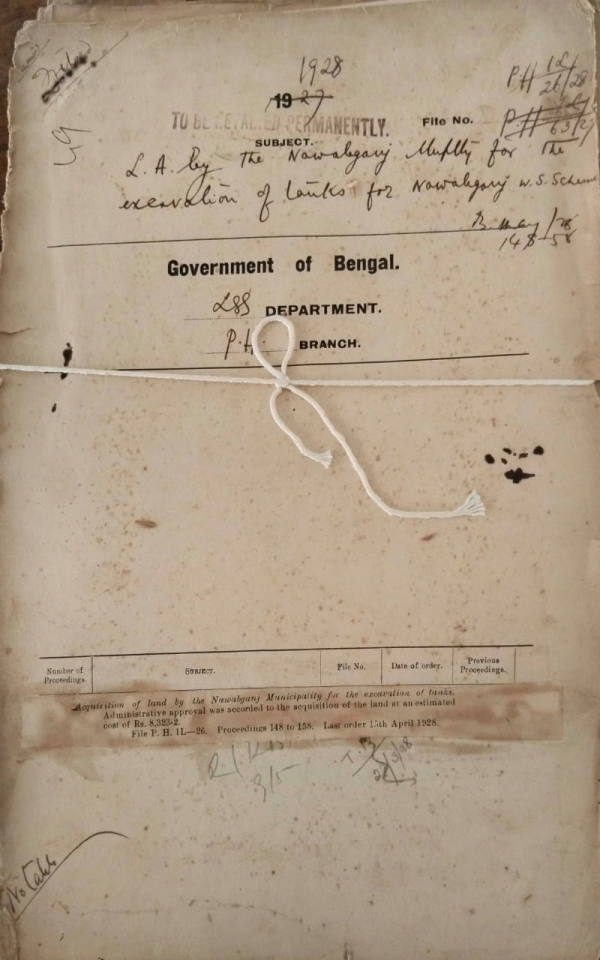 1928
1927
P H 1L/26/28
TO BE RETAINED PERMANENTLY.
File No.
SUBJECT.
L. A. by the Nawabganj Mcplty for the
excavation of tanks for Nawabganj W. S. Scheme
148-58
Government of Bengal.
LSG DEPARTMENT.
P. H. BRANCH.
Number of Proceedings.
SUBJECT.
File No.
Date of order.
Previous Proceedings.
Acquisition of land by the Nawabganj Municipality for the excavation of tanks.
Administrative approval was accorded to the acquisition of the land at an estimated
cost of Rs. 8,323-2.
File P. H. 1L—26. Proceedings 148 to 158. Last order 15th April 1928.
3/5
No Table